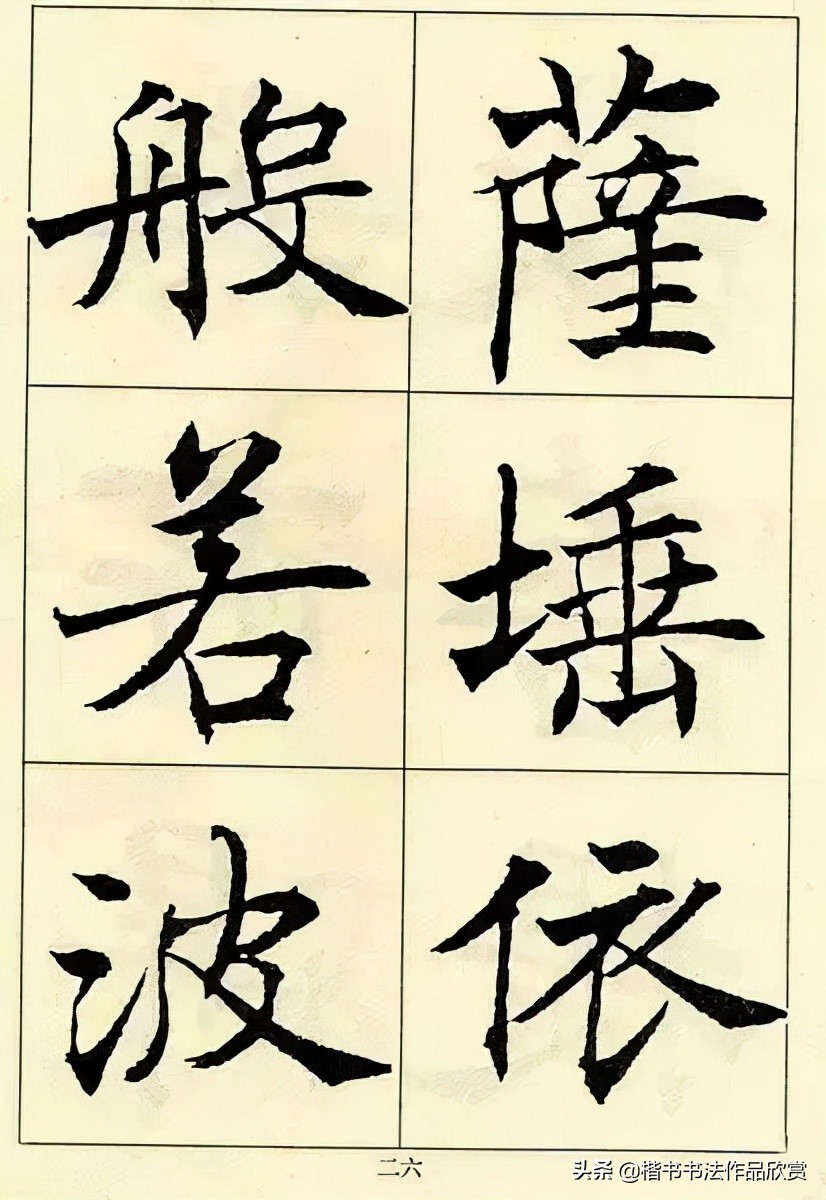 薩埵依
般若波
二六
头条 @楷书书法作品欣赏